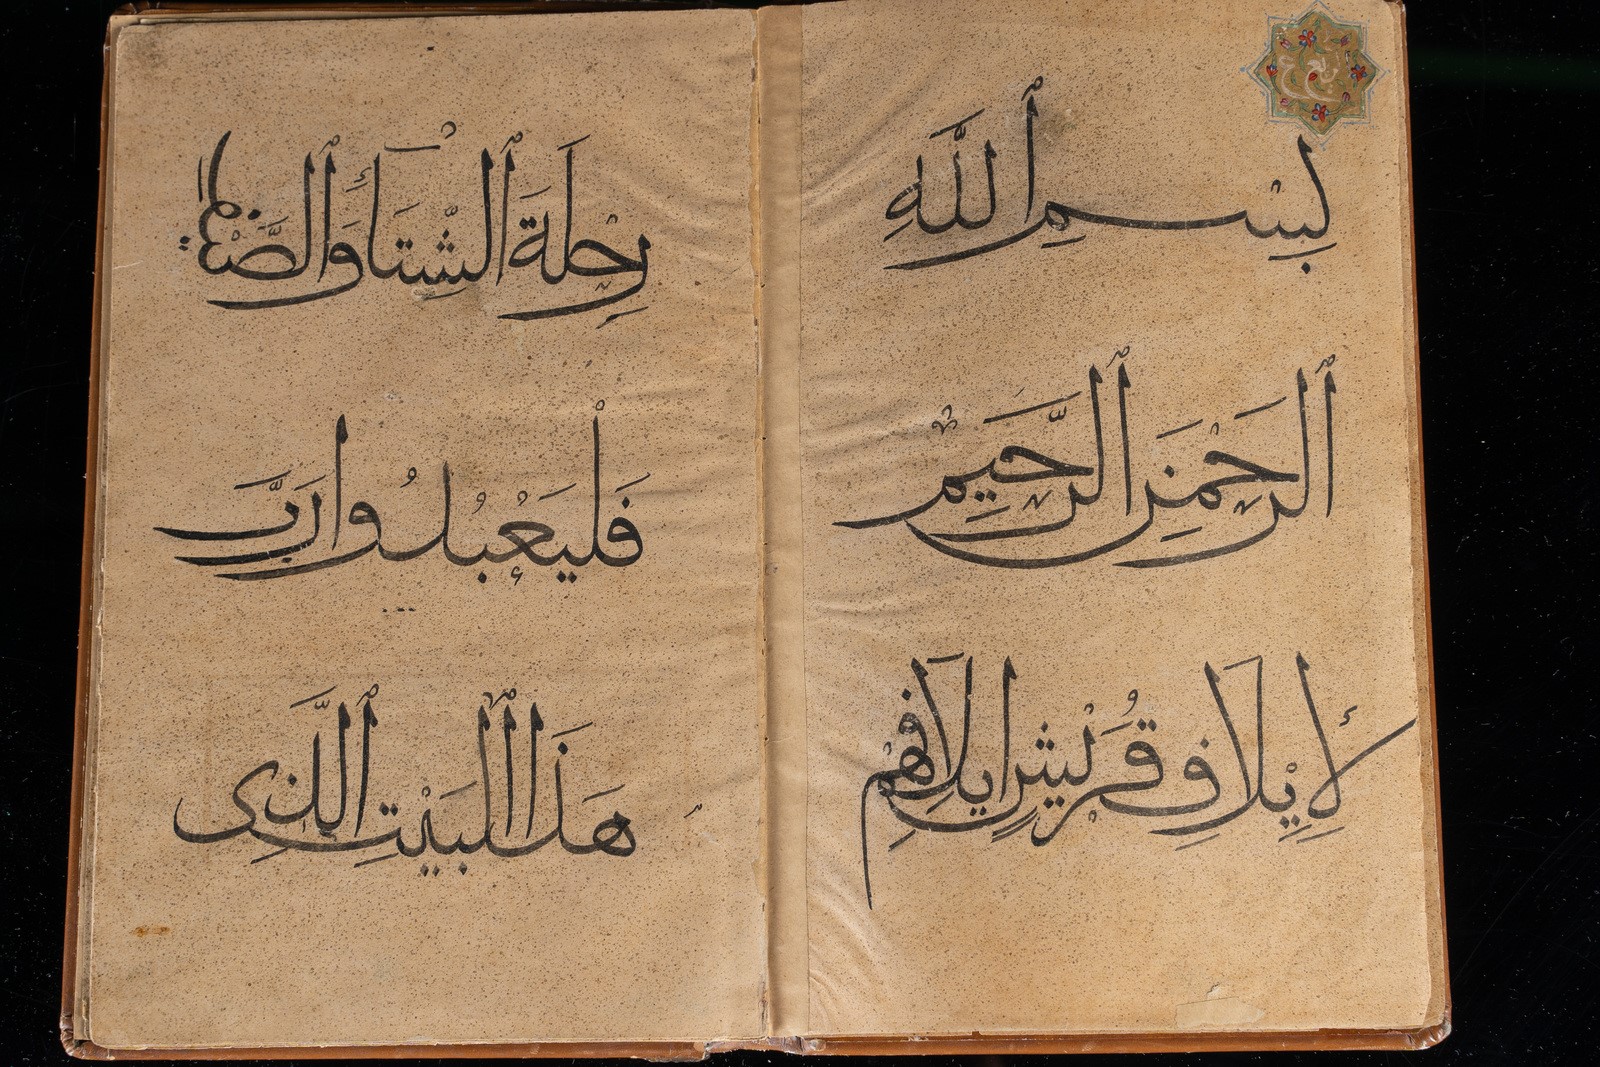 بِسْمِ ٱللَّهِ
ٱلرَّحْمَنِ ٱلرَّحِيمِ
لِإِيلَافِ قُرَيْشٍ إِيلَافِهِمْ
رِحْلَةَ ٱلشِّتَاءِ وَٱلصَّيْفِ
فَلْيَعْبُدُوا رَبَّ
هَذَا ٱلْبَيْتِ ٱلَّذِى